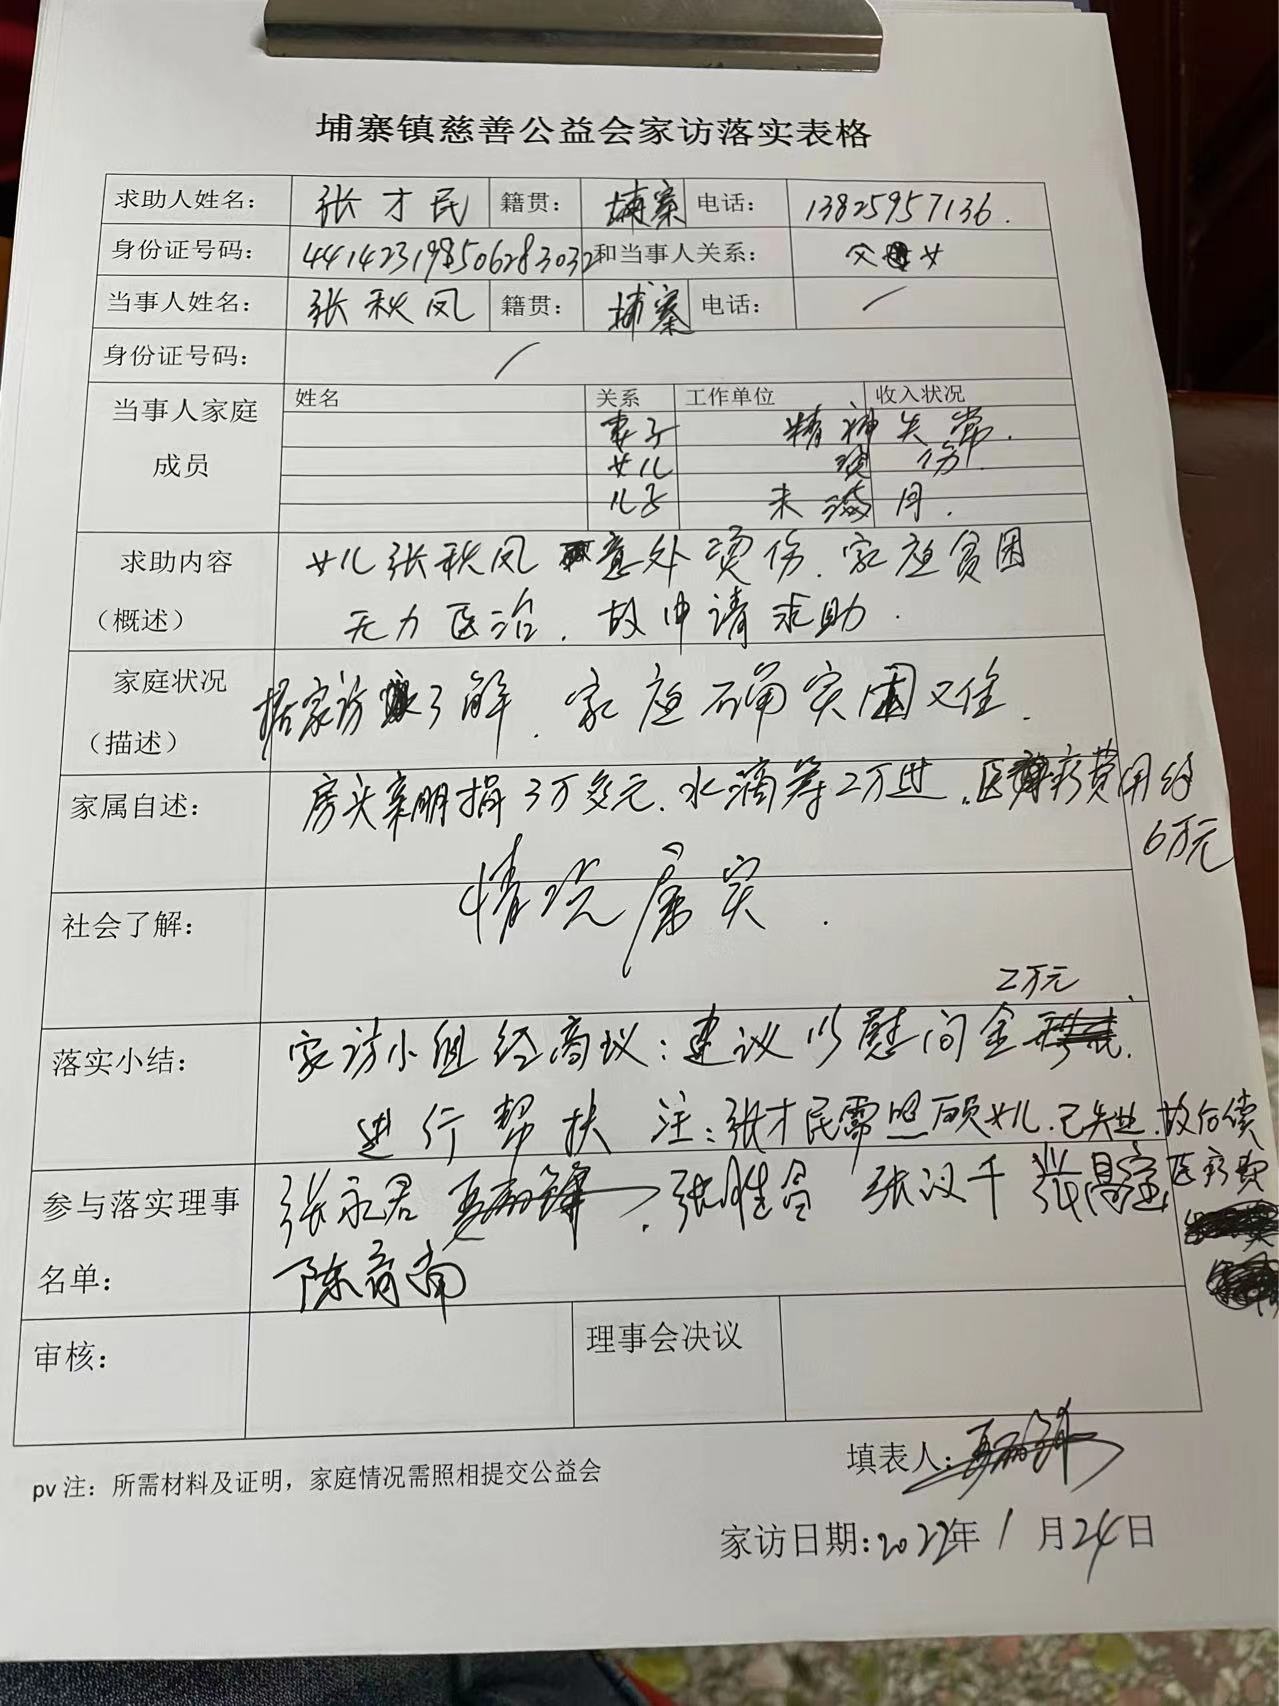 埔寨镇慈善公益会家访落实表格
求助人姓名： 张才民 籍贯： 埔寨 电话： 13825957136.
身份证号码： 441423198506283032 和当事人关系： 父女
当事人姓名： 张秋凤 籍贯： 埔寨 电话： /
身份证号码： /
当事人家庭成员 姓名 关系 工作单位 收入状况
妻子 精神失常.
女儿 烫伤.
儿子 未满月.
求助内容 女儿张秋凤意外烫伤.家庭贫困
（概述） 无力医治,故申请求助.
家庭状况 据家访了解.家庭确实困难.
（描述）
家属自述： 房头亲朋捐3万多元.水滴筹2万过.医疗费用约
6万元
情况属实.
社会了解：
2万元
落实小结： 家访小组经商议:建议以慰问金
进行帮扶 注:张才民需照顾女儿.已失业.故后续
医疗费
参与落实理事 张永君 张胜合 张汉千
名单： 陈育南
审核： 理事会决议
填表人：
pv 注：所需材料及证明，家庭情况需照相提交公益会
家访日期:2022年1月24日